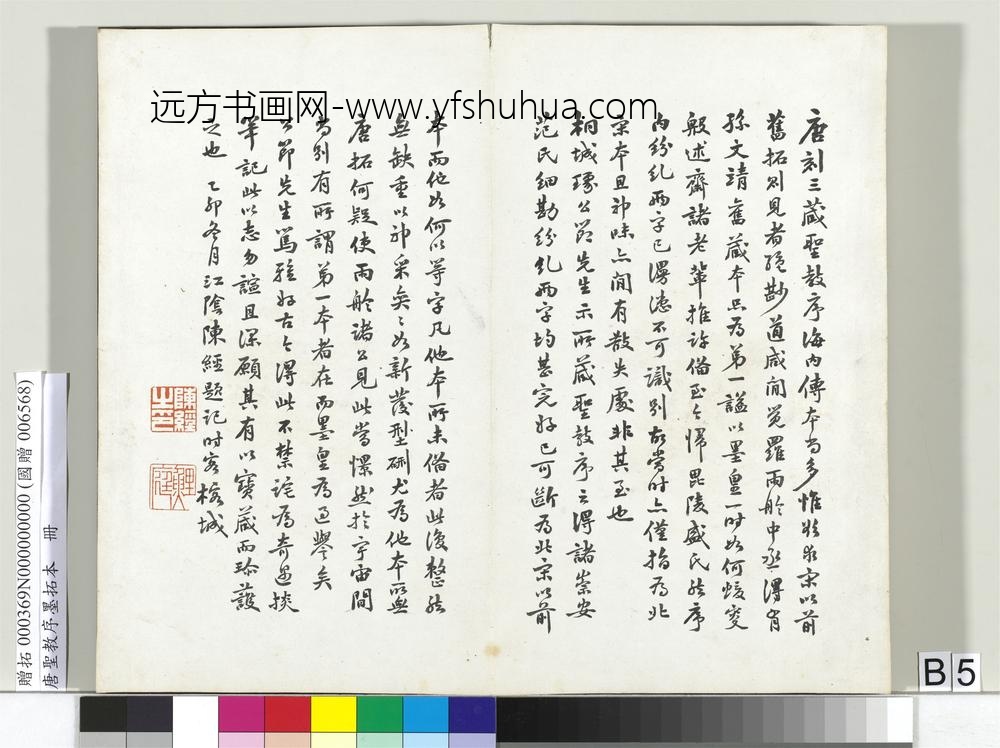 远方书画网-www.yfshuhua.com
唐刻三藏聖教序海内傳本尚多惟欲求宋以前
舊拓則見者絕尠道咸間覺羅雨舲中丞得有
孫文靖舊藏本忠為第一謚以墨皇一時如何媛叟
殷述齋諸老輩推許備至今歸毘陵盛氏然序
内紛糺兩字已漫漶不可識別故當时亦僅指為北
宋本且神味亦間有散失處非其至也
桐城公節先生示所藏聖教序云得諸崇安
范氏細勘紛糺兩字均甚完好已可斷為北宋以前
本而他如何以等字凡他本所未備者此復整然
無缺重以神采奕奕如新發型硎尤為他本所無
唐拓何疑使雨舲諸公見此當憬然於宇宙間
尚別有所謂第一本者在而墨皇為過譽矣
公節先生篤雅好古今得此不禁詫為奇遇掞
筆記此以志勿諠且深願其有以寶藏而珍護
之也 乙卯冬月江陰陳經題記时客榕城
陳經之印
贈拓 000369N000000000 (國贈 006568)
唐聖教序墨拓本 冊
B 5